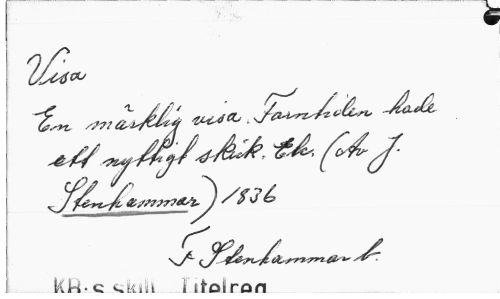 Visa
En märklig visa. Farntiden hade
ett nyttigt skick. Etc. (Av J.
Stenhammar) 1836
F Stenhammar b.
KB:s skill. Titelreg